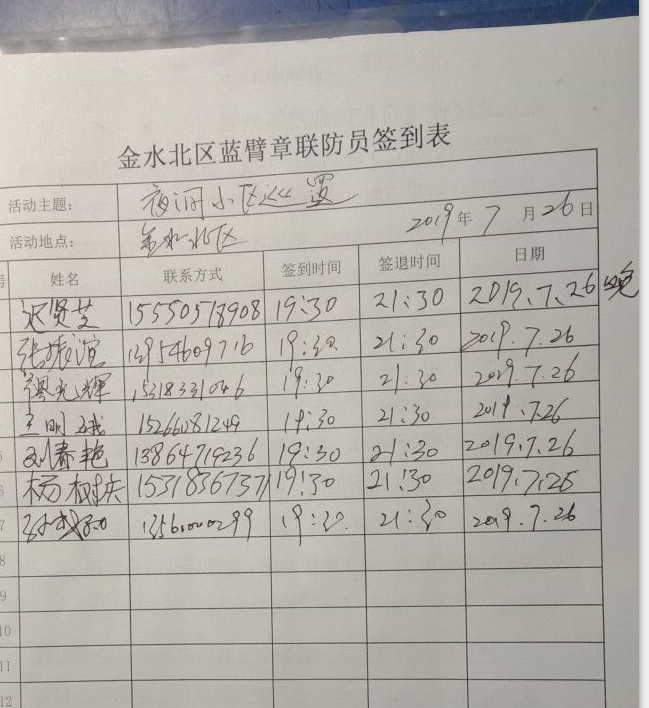 金水北区蓝臂章联防员签到表
活动主题: 夜间小区巡逻
2019年 7 月 26 日
活动地点: 金水北区
号 姓名 联系方式 签到时间 签退时间 日期
迟贤芝 15550518908 19:30 21:30 2019.7.26 晚
19:30 21:30 2019.7.26
光辉 15318331046 19:30 21:30 2019.7.26
王明 15266081249 19:30 21:30 2019.7.26
5 刘春艳 13864719236 19:30 21:30 2019.7.26
6 杨树 15318367371 19:30 21:30 2019.7.26
7 19:30 21:30 2019.7.26
8
9
10
11
12